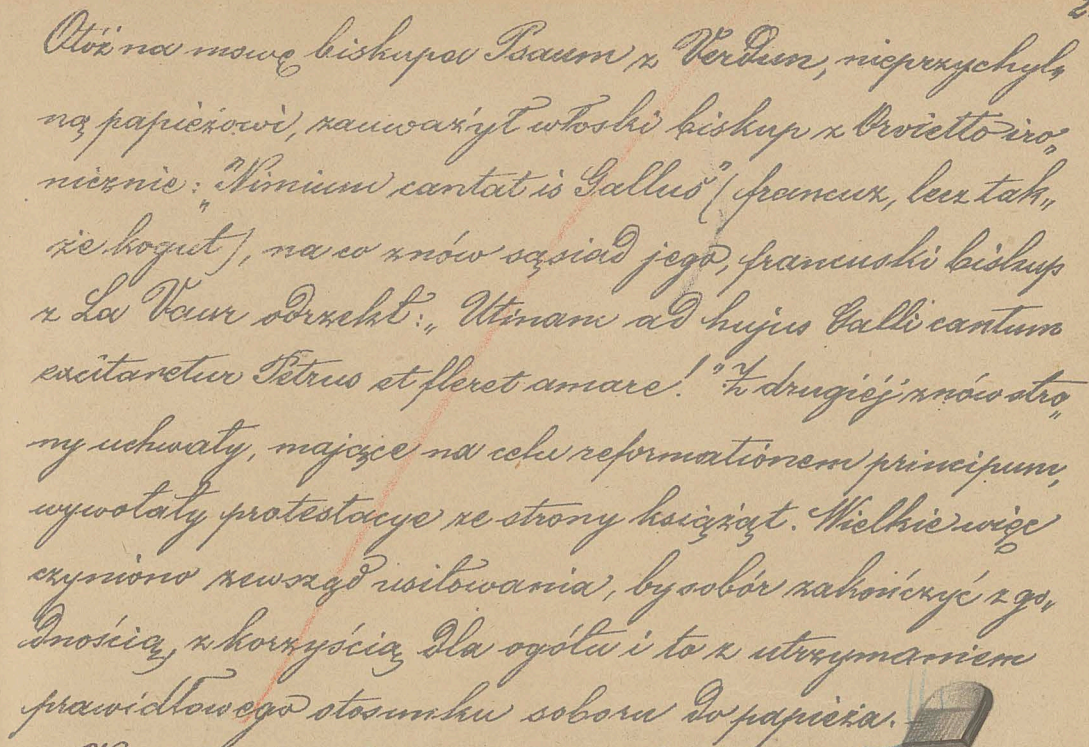 Otóż na mowę biskupa Psaum z Verdun, nieprzychyl„
ną papieżowi, zauważył włoski biskup z Orvietto iro„
nicznie: „"Nimium cantat is Gallus" (francuz, lecz tak„
że kogut), na co znów sąsiad jego, francuski biskup
z La Vaur odrzekł: „Utinam ad hujus Galli cantum
excitaretur Petrus et fleret amare!" Z drugiéj znów stro„
ny uchwały, mające na celu reformationem principum,
wywołały protestacye ze strony książąt. Wielkie więc
czyniono zewsząd usiłowania, by sobór zakończyć z go„
dnością, z korzyścią dla ogółu i to z utrzymaniem
prawidłowego stosunku soboru do papieża.